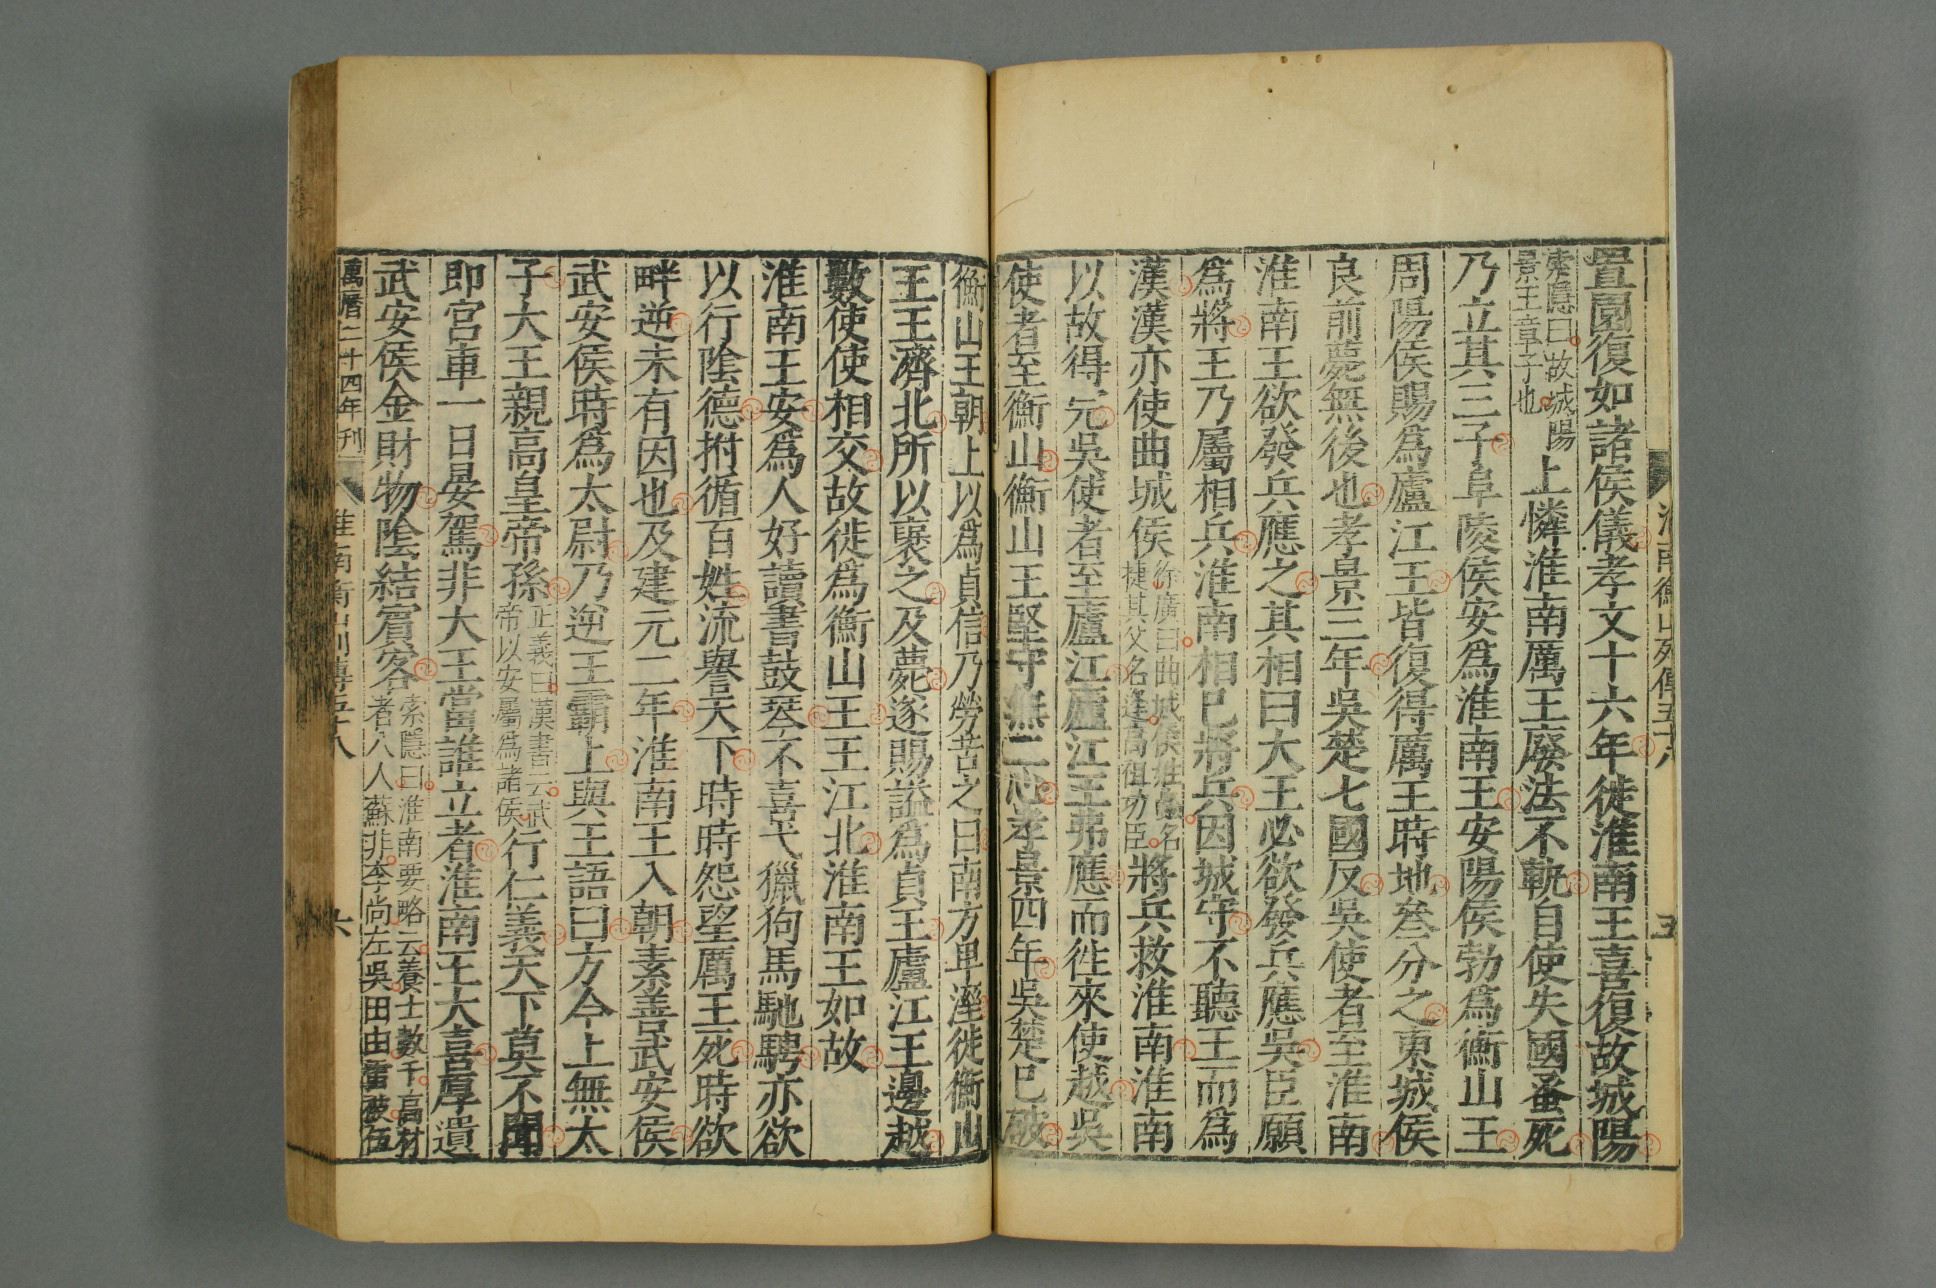 淮南衡山列傳五十八
五
置園復如諸侯儀孝文十六年徙淮南王喜復故城陽
索隱曰故城陽
景王章子也
上憐淮南厲王廢法不軌自使失國蚤死
乃立其三子阜陵侯安爲淮南王安陽侯勃爲衡山王
周陽侯賜爲廬江王皆復得厲王時地叁分之東城侯
良前薨無後也孝景三年吳楚七國反吳使者至淮南
淮南王欲發兵應之其相曰大王必欲發兵應吳臣願
爲將王乃屬相兵淮南相已將兵因城守不聽王而爲
漢漢亦使曲城侯
徐廣曰曲城侯姓蟲名
捷其父名逢高祖功臣
將兵救淮南淮南
以故得完吳使者至廬江廬江王弗應而往來使越吳
使者至衡山衡山王堅守無二心孝景四年吳楚已破
衡山王朝上以爲貞信乃勞苦之曰南方卑溼徙衡山
王王濟北所以褒之及薨遂賜謚爲貞王廬江王邊越
數使使相交故徙爲衡山王王江北淮南王如故
淮南王安爲人好讀書鼓琴不喜弋獵狗馬馳騁亦欲
以行陰德拊循百姓流譽天下時時怨望厲王死時欲
畔逆未有因也及建元二年淮南王入朝素善武安侯
武安侯時爲太尉乃逆王霸上與王語曰方今上無太
子大王親高皇帝孫
正義曰漢書云武
帝以安屬爲諸侯
行仁義天下莫不聞
即宮車一日晏駕非大王當誰立者淮南王大喜厚遺
武安侯金財物陰結賓客
索隱曰淮南要略云養士數千高材
者八人蘇非李尚左吳田由雷被伍
萬曆二十四年刊
淮南衡山列傳五十八
六